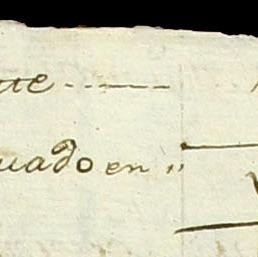 ue
uado en "